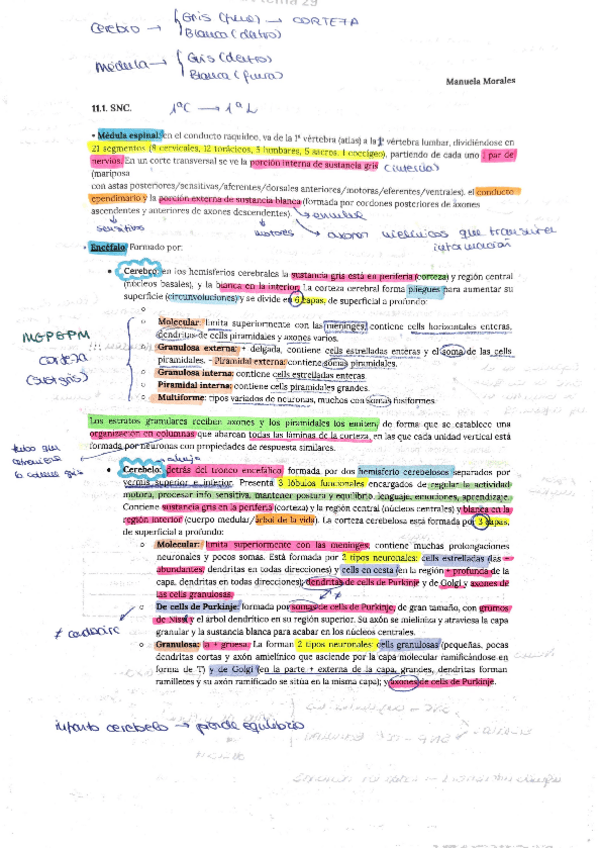 tema 29
Cerebro → Gris (fuera) → CORTEZA
Blanca (dentro)
médula → Gris (dentro)
Blanca (fuera)
Manuela Morales
11.1. SNC.
1ªC → 1ªL
• Médula espinal: en el conducto raquídeo, va de la 1ª vértebra (atlas) a la 1ª vértebra lumbar, dividiéndose en
21 segmentos (8 cervicales, 12 torácicos, 5 lumbares, 5 sacros, 1 coccígeo), partiendo de cada uno 1 par de
nervios. En un corte transversal se ve la porción interna de sustancia gris
(mariposa
con astas posteriores/sensitivas/aferentes/dorsales anteriores/motoras/eferentes/ventrales), el conducto
ependimario y la porción externa de sustancia blanca (formada por cordones posteriores de axones
ascendentes y anteriores de axones descendentes).
→ envuelve
sensitivos
motores
→ axones mielínicos que transmiten
información
• Encéfalo: Formado por:
• Cerebro: en los hemisferios cerebrales la sustancia gris está en periferia (corteza) y región central
(núcleos basales), y la blanca en la interior. La corteza cerebral forma pliegues para aumentar su
superficie (circunvoluciones) y se divide en 6 capas, de superficial a profundo:
o
o Molecular: limita superiormente con las meninges, contiene cells horizontales enteras,
dendritas de cells piramidales y axones varios.
o Granulosa externa: + delgada, contiene cells estrelladas enteras y el soma de las cells
piramidales. - Piramidal externa: contiene somas piramidales.
o Granulosa interna: contiene cells estrelladas enteras
o Piramidal interna: contiene cells piramidales grandes.
o Multiforme: tipos variados de neuronas, muchos con somas fusiformes.
MGPGPM
corteza
(sust gris)
Los estratos granulares reciben axones y los piramidales los emiten, de forma que se establece una
organización en columnas que abarcan todas las láminas de la corteza, en las que cada unidad vertical está
formada por neuronas con propiedades de respuesta similares.
tubo que
• Cerebelo: detrás del tronco encefálico formada por dos hemisferio cerebelosos separados por
vermis superior e inferior. Presenta 3 lóbulos funcionales encargados de regular la actividad
motora, procesar info sensitiva, mantener postura y equilibrio, lenguaje, emociones, aprendizaje.
Contiene sustancia gris en la periferia (corteza) y la región central (núcleos centrales) y blanca en la
región interior (cuerpo medular/árbol de la vida). La corteza cerebelosa está formada por 3 capas,
de superficial a profundo:
o Molecular: limita superiormente con las meninges, contiene muchas prolongaciones
neuronales y pocos somas. Está formada por 2 tipos neuronales: cells estrelladas (las –
abundantes, dendritas en todas direcciones) y cells en cesta (en la región + profunda de la
capa, dendritas en todas direcciones); dendritas de cells de Purkinje y de Golgi y axones de
las cells granulosas.
o De cells de Purkinje: formada por somas de cells de Purkinje, de gran tamaño, con grumos
de Nissl y el árbol dendrítico en su región superior. Su axón se mieliniza y atraviesa la capa
granular y la sustancia blanca para acabar en los núcleos centrales.
o Granulosa: la + gruesa. La forman 2 tipos neuronales: cells granulosas (pequeñas, pocas
dendritas cortas y axón amielínico que asciende por la capa molecular ramificándose en
forma de T) y de Golgi (en la parte + externa de la capa, grandes, dendritas forman
ramilletes y su axón ramificado se sitúa en la misma capa); y axones de cells de Purkinje.
infarto cerebelo → pierde equilibrio